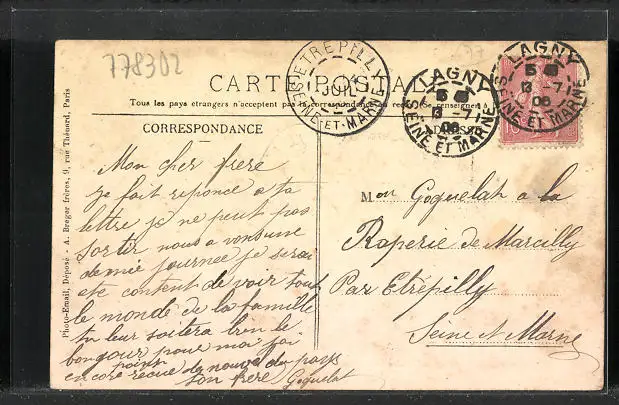 778302
CARTE POSTALE
Tous les pays étrangers n'acceptent pas la correspondance au recto (Se renseigner à
CORRESPONDANCE
ETREPILLY
JUIL
SEINE-ET-MARNE
LAGNY
5
13 -7
06
SEINE ET MARNE
LAGNY
5
13 -7
06
SEINE ET MARNE
10
Photo-Email, Déposé - A. Breger frères, 9, rue Thénard, Paris
Mon cher frere
je fait reponce a ta
lettre je ne peut pas
sortir nous a vons une
demie journee je serai
ete content de voir tout
le monde de la famille
tu leur soitera bien le
bonjour pour moi j'ai
point
encore recue de nouvel du pays
ton frere Goguelat
Mon Goguelat a la
Raperie de Marcilly
Par Etrépilly
Seine et Marne